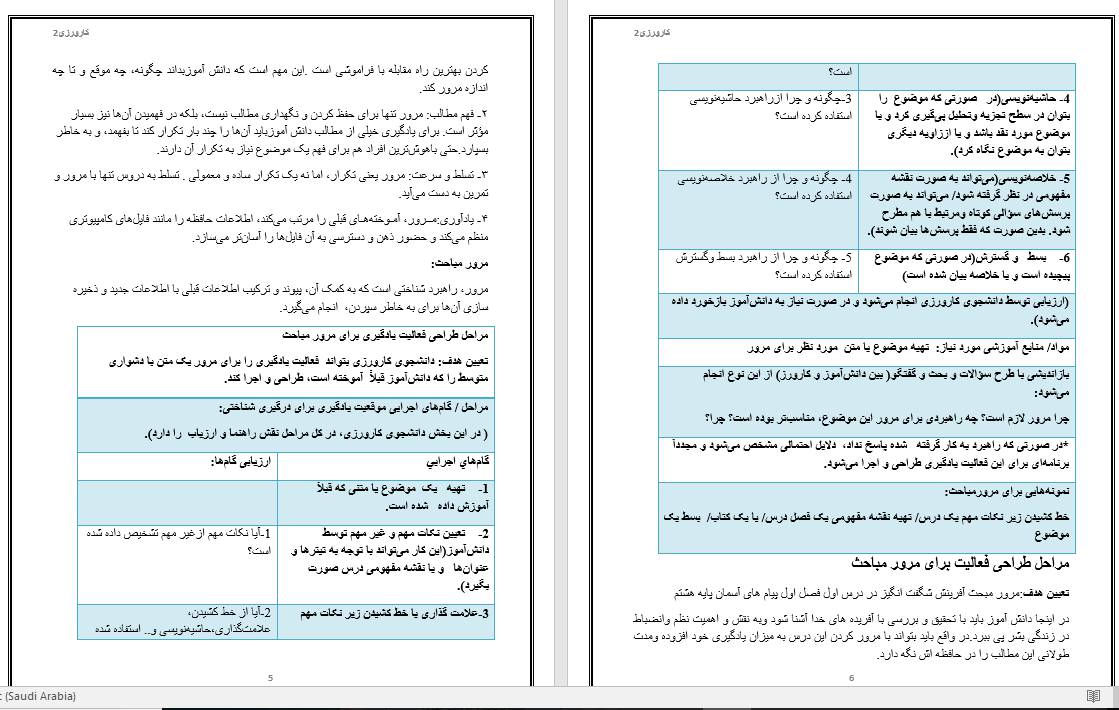 کارورزی2
کردن بهترین راه مقابله با فراموشی است .این مهم است که دانش آموزبداند چگونه، چه موقع و تا چه
اندازه مرور کند.
۲- فهم مطالب: مرور تنها برای حفظ کردن و نگهداری مطالب نیست، بلکه در فهمیدن آن‌ها نیز بسیار
مؤثر است. برای یادگیری خیلی از مطالب دانش آموزباید آن‌ها را چند بار تکرار کند تا بفهمد، و به خاطر
بسپارد.حتی باهوش‌ترین افراد هم برای فهم یک موضوع نیاز به تکرار آن دارند.
۳- تسلط و سرعت: مرور یعنی تکرار، اما نه یک تکرار ساده و معمولی . تسلط به دروس تنها با مرور و
تمرین به دست می‌آید.
۴- یادآوری:مـرور، آموخته‌هـای قبلی را مرتب می‌کند، اطلاعات حافظه را مانند فایل‌های کامپیوتری
منظم می‌کند و حضور ذهن و دسترسی به آن فایل‌ها را آسان‌تر می‌سازد.
مرور مباحث:
مرور، راهبرد شناختی است که به کمک آن، پیوند و ترکیب اطلاعات قبلی با اطلاعات جدید و ذخیره
سازی آن‌ها برای به خاطر سپردن، انجام می‌گیرد.
مراحل طراحی فعالیت یادگیری برای مرور مباحث
تعیین هدف: دانشجوی کارورزی بتواند فعالیت یادگیری را برای مرور یک متن با دشواری
متوسط را که دانش‌آموز قبلاً آموخته است، طراحی و اجرا کند.
مراحل / گام‌های اجرایی موقعیت یادگیری برای درگیری شناختی:
( در این بخش دانشجوی کارورزی، در کل مراحل نقش راهنما و ارزیاب را دارد).
گام‌هاي اجرايي
ارزیابی گام‌ها:
1- تهیه یک موضوع یا متنی که قبلاً
آموزش داده شده است.
2- تعیین نکات مهم و غیر مهم توسط
دانش‌آموز(این کار می‌تواند با توجه به تیترها و
عنوان‌ها و یا نقشه مفهومی درس صورت
بگیرد).
1-آیا نکات مهم ازغیر مهم تشخیص داده شده
است؟
3-علامت گذاری یا خط کشیدن زیر نکات مهم
2-آیا از خط کشیدن،
علامت‌گذاری،حاشیه‌نویسی و.. استفاده شده
5
کارورزی2
است؟
4- حاشیه‌نویسی(در صورتی که موضوع را
بتوان در سطح تجزیه وتحلیل پی‌گیری کرد و یا
موضوع مورد نقد باشد و یا اززاویه دیگری
بتوان به موضوع نگاه کرد).
3-چگونه و چرا ازراهبرد حاشیه‌نویسی
استفاده کرده است؟
5- خلاصه‌نویسی(می‌تواند به صورت نقشه
مفهومی در نظر گرفته شود/ می‌تواند به صورت
پرسش‌های سؤالی کوتاه ومرتبط با هم مطرح
شود. بدین صورت که فقط پرسش‌ها بیان شوند).
4- چگونه و چرا از راهبرد خلاصه‌نویسی
استفاده کرده است؟
6- بسط و گسترش(در صورتی که موضوع
پیچیده است و یا خلاصه بیان شده است)
5- چگونه و چرا از راهبرد بسط وگسترش
استفاده کرده است؟
(ارزیابی توسط دانشجوی کارورزی انجام می‌شود و در صورت نیاز به دانش‌آموز بازخورد داده
می‌شود).
مواد/ منابع آموزشی مورد نیاز: تهیه موضوع یا متن مورد نظر برای مرور
بازاندیشی با طرح سؤالات و بحث و گفتگو( بین دانش‌آموز و کارورز) از این نوع انجام
می‌شود:
چرا مرور لازم است؟ چه راهبردی برای مرور این موضوع، مناسب‌تر بوده است؟ چرا؟
*در صورتی که راهبرد به کار گرفته شده پاسخ نداد، دلایل احتمالی مشخص می‌شود و مجدداً
برنامه‌ای برای این فعالیت یادگیری طراحی و اجرا می‌شود.
نمونه‌هایی برای مرورمباحث:
خط کشیدن زیر نکات مهم یک درس/ تهیه نقشه مفهومی یک فصل درس/ یا یک کتاب/ بسط یک
موضوع
مراحل طراحی فعالیت برای مرور مباحث
تعیین هدف:مرور مبحث آفرینش شگفت انگیز در درس اول فصل اول پیام های آسمان پایه هشتم
در اینجا دانش آموز باید با تحقیق و بررسی با آفریده های خدا آشنا شود وبه نقش و اهمیت نظم وانضباط
در زندگی بشر پی ببرد.در واقع باید بتواند با مرور کردن این درس به میزان یادگیری خود افزوده ومدت
طولانی این مطالب را در حافظه اش نگه دارد.
6
(Saudi Arabia)